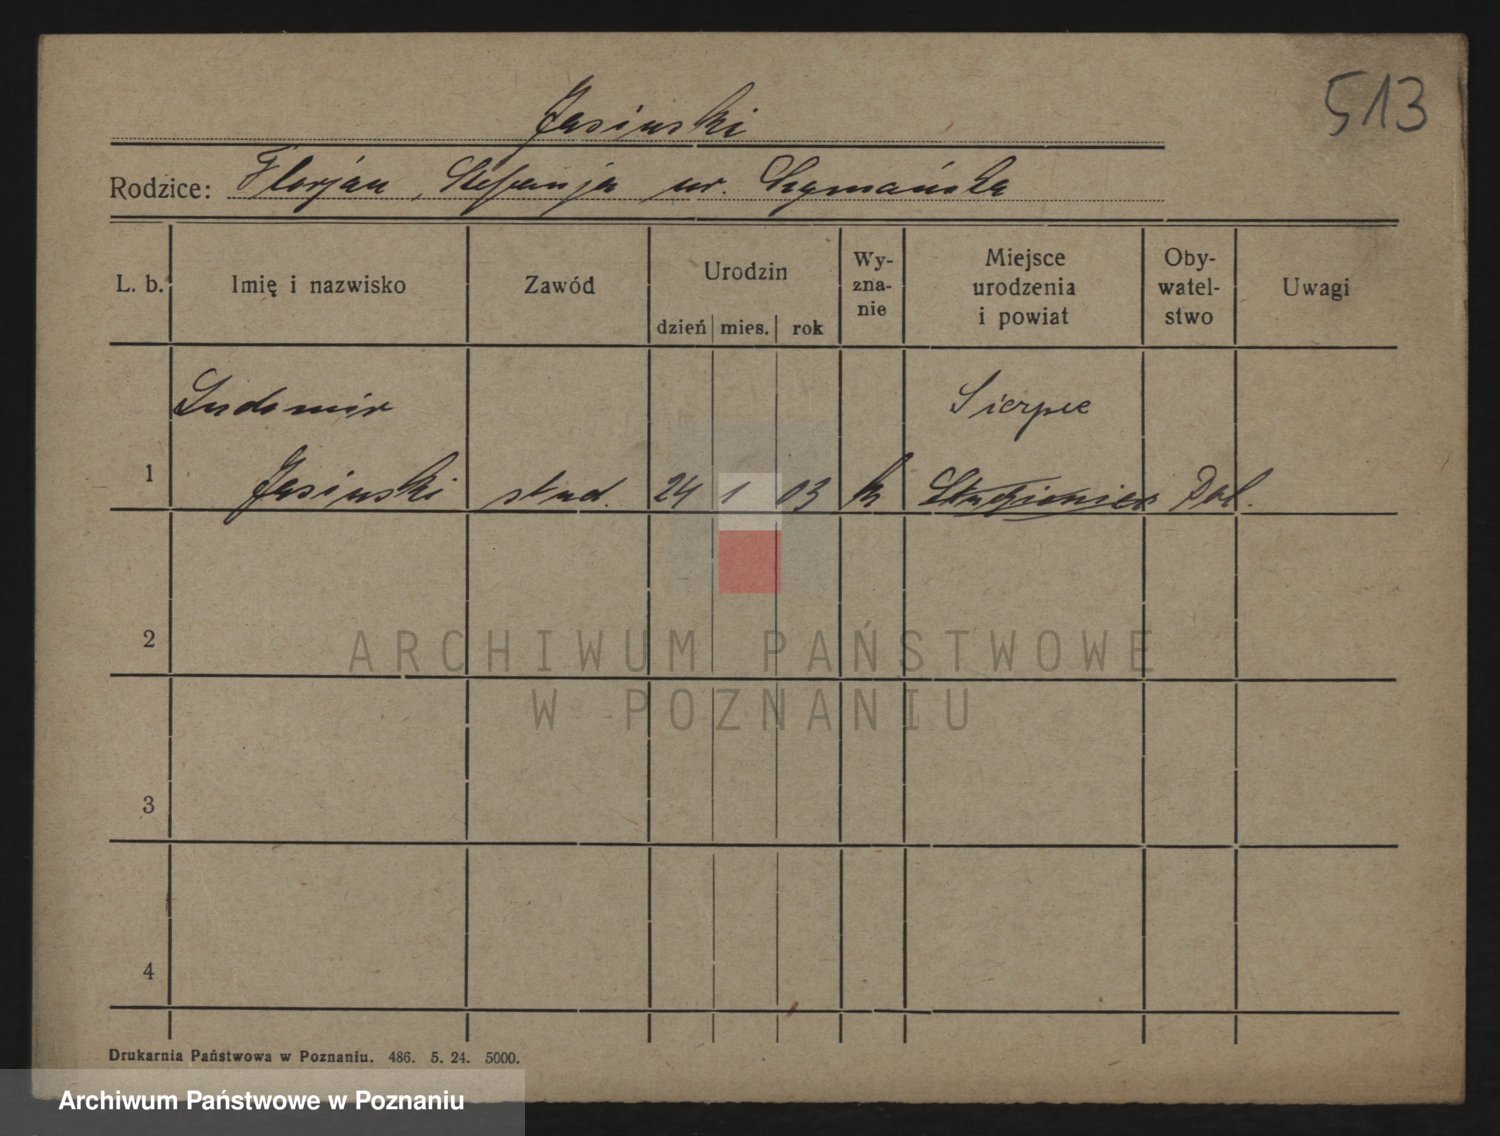 513
Jasiński
Rodzice: Florjan, Stefanja ur. Szymańska
L. b. Imię i nazwisko Zawód Urodzin dzień mies. rok Wy-zna-nie Miejsce urodzenia i powiat Oby-watel-stwo Uwagi
Ludomir Sierpc
1 Jasiński stud. 24 1 03 k Pol.
2
3
4
ARCHIWUM PAŃSTWOWE
W POZNANIU
Drukarnia Państwowa w Poznaniu. 486. 5. 24. 5000.
Archiwum Państwowe w Poznaniu